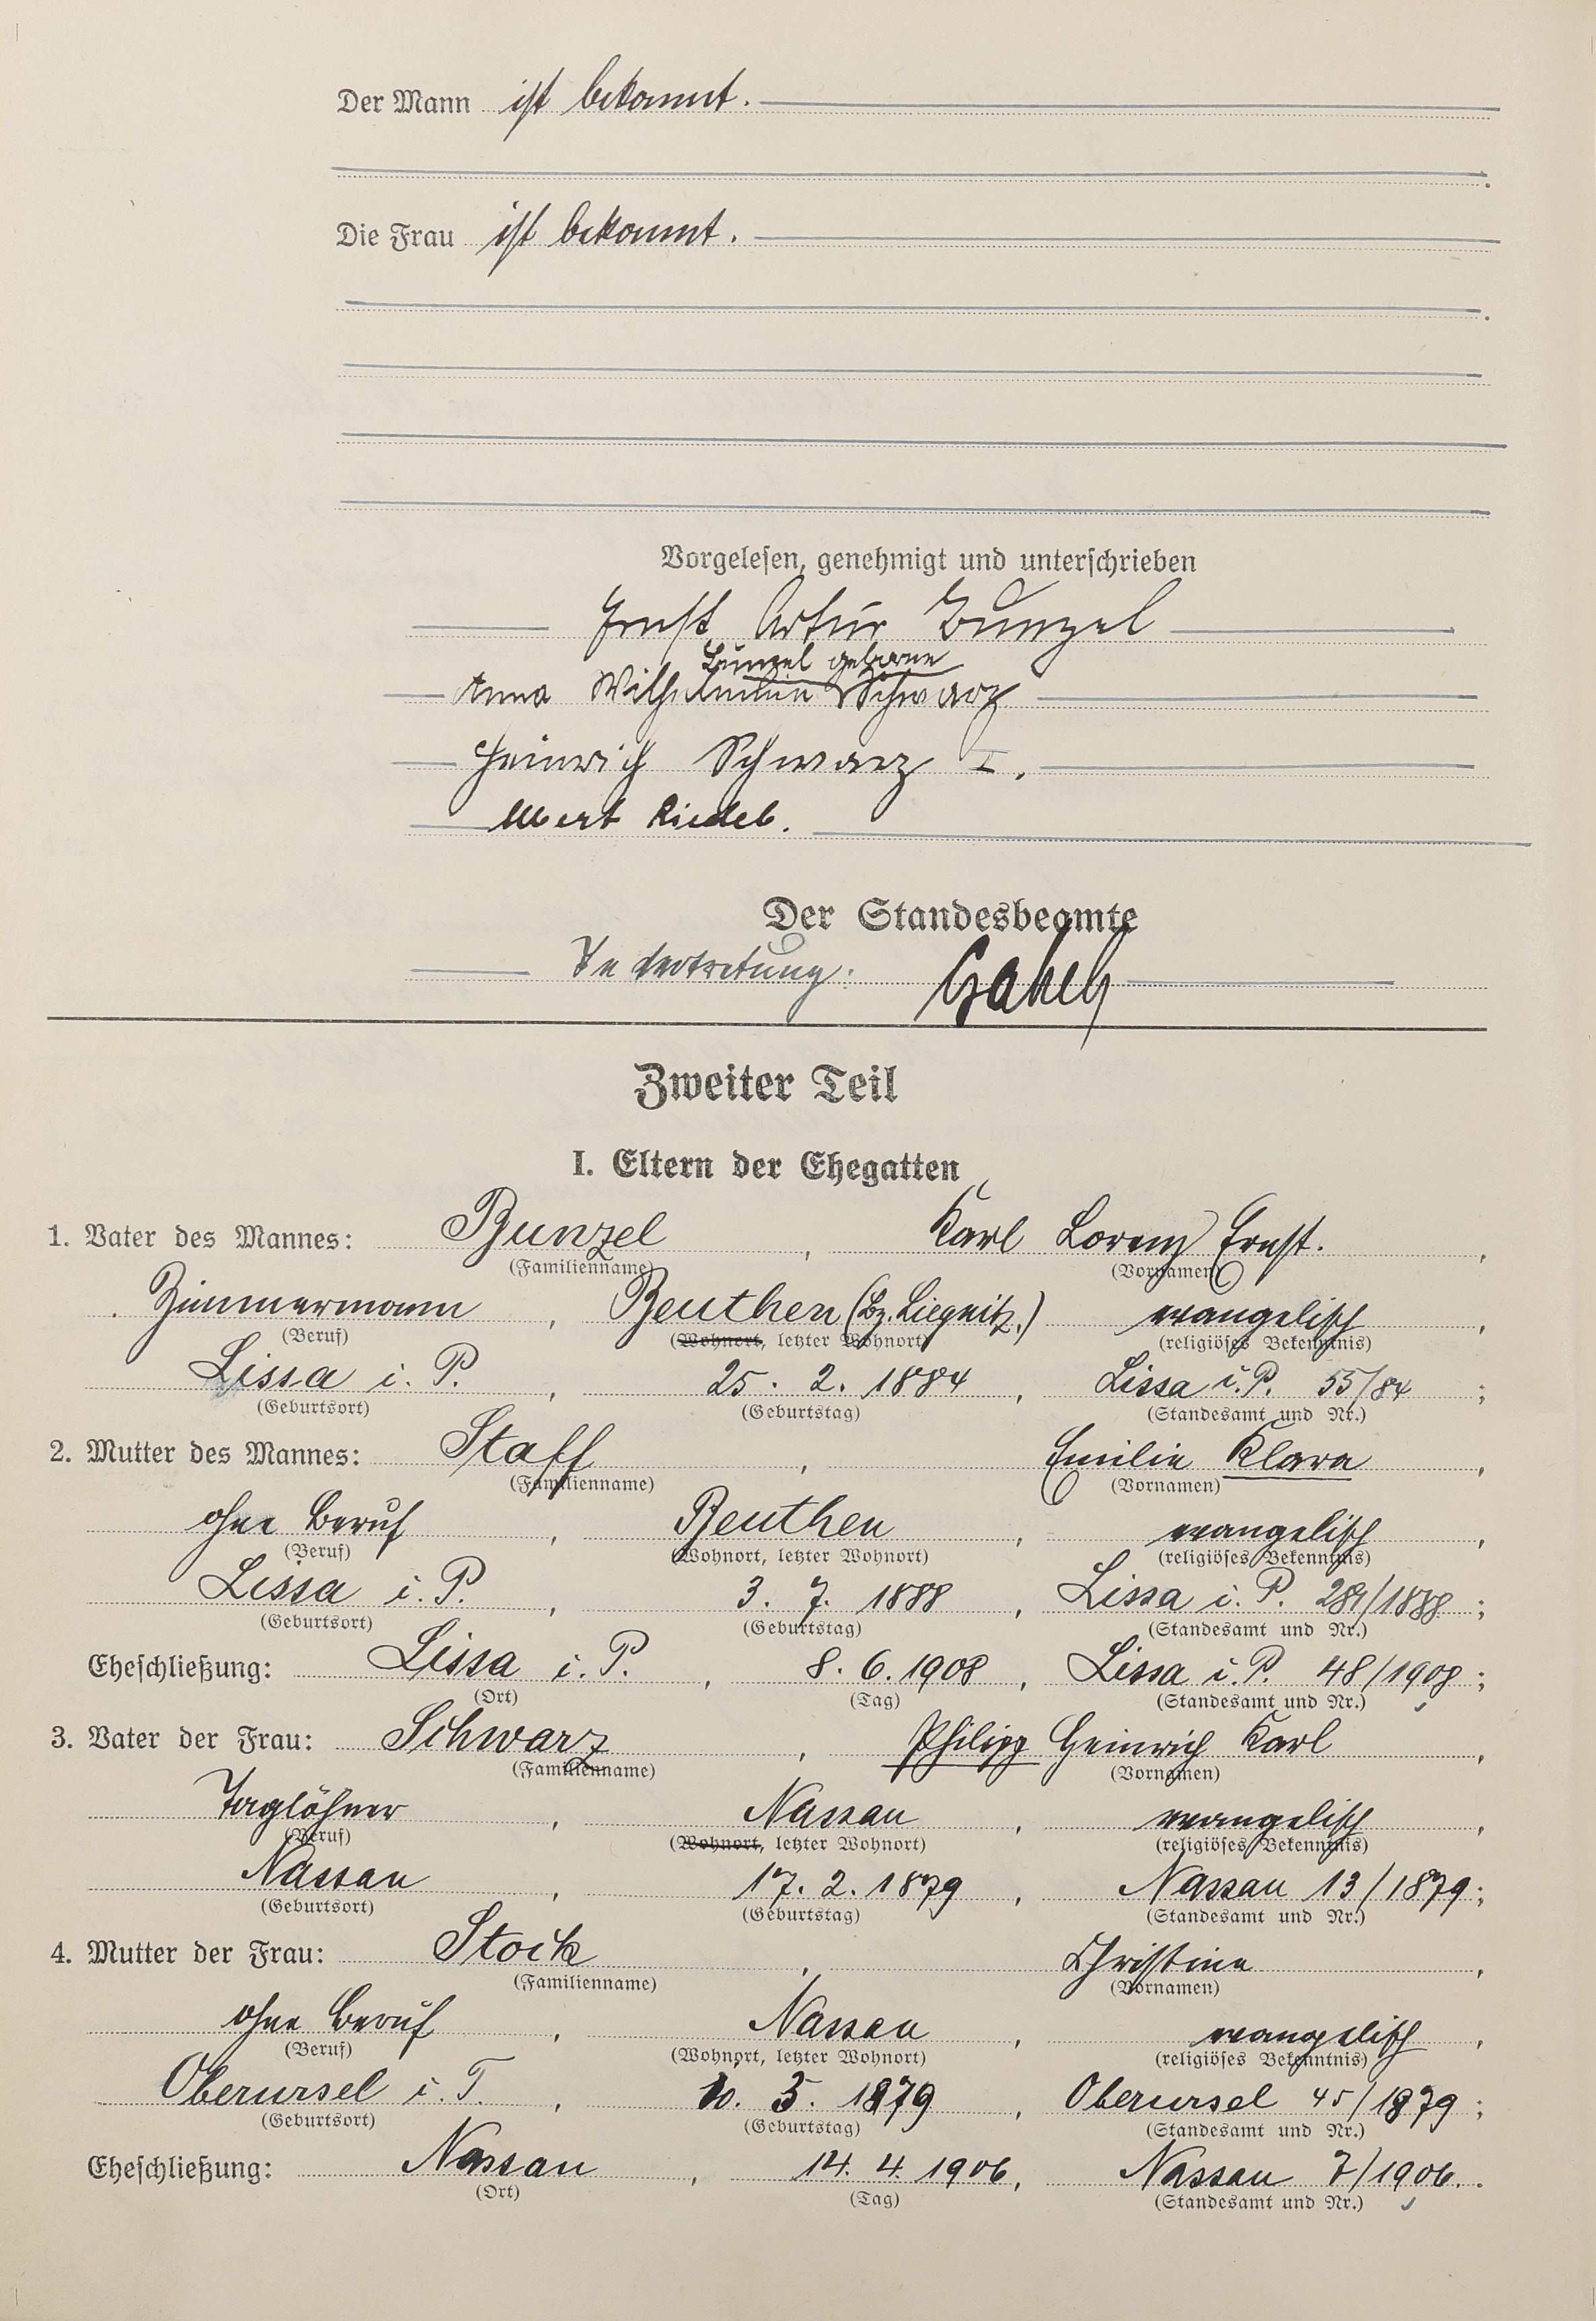 Der Mann ist bekannt.
Die Frau ist bekannt.
Vorgelesen, genehmigt und unterschrieben
Ernst Artur Bunzel
Bunzel geborne
Anna Wilhelmine Schwarz
Heinrich Schwarz I.
Albert Riedel.
Der Standesbeamte
In Vertretung:
Zweiter Teil
I. Eltern der Ehegatten
1. Vater des Mannes: Bunzel, Karl Lorenz Ernst.,
(Familienname) (Vornamen)
Zimmermann, Beuthen (Bz. Liegnitz.) evangelisch,
(Beruf) (Wohnort, letzter Wohnort) (religiöses Bekenntnis)
Lissa i. P., 25. 2. 1884, Lissa i. P. 55/84;
(Geburtsort) (Geburtstag) (Standesamt und Nr.)
2. Mutter des Mannes: Staff, Emilie Klara,
(Familienname) (Vornamen)
ohne Beruf, Beuthen, evangelisch,
(Beruf) (Wohnort, letzter Wohnort) (religiöses Bekenntnis)
Lissa i. P., 3. 7. 1888, Lissa i. P. 284/1888;
(Geburtsort) (Geburtstag) (Standesamt und Nr.)
Eheschließung: Lissa i. P., 8. 6. 1908, Lissa i. P. 48/1908;
(Ort) (Tag) (Standesamt und Nr.)
3. Vater der Frau: Schwarz, Philipp Heinrich Karl,
(Familienname) (Vornamen)
Taglöhner, Nassau, evangelisch,
(Beruf) (Wohnort, letzter Wohnort) (religiöses Bekenntnis)
Nassau, 17. 2. 1879, Nassau 13/1879;
(Geburtsort) (Geburtstag) (Standesamt und Nr.)
4. Mutter der Frau: Stock, Christine,
(Familienname) (Vornamen)
ohne Beruf, Nassau, evangelisch,
(Beruf) (Wohnort, letzter Wohnort) (religiöses Bekenntnis)
Oberursel i. T., 10. 3. 1879, Oberursel 45/1879;
(Geburtsort) (Geburtstag) (Standesamt und Nr.)
Eheschließung: Nassau, 14. 4. 1906, Nassau 7/1906.
(Ort) (Tag) (Standesamt und Nr.)